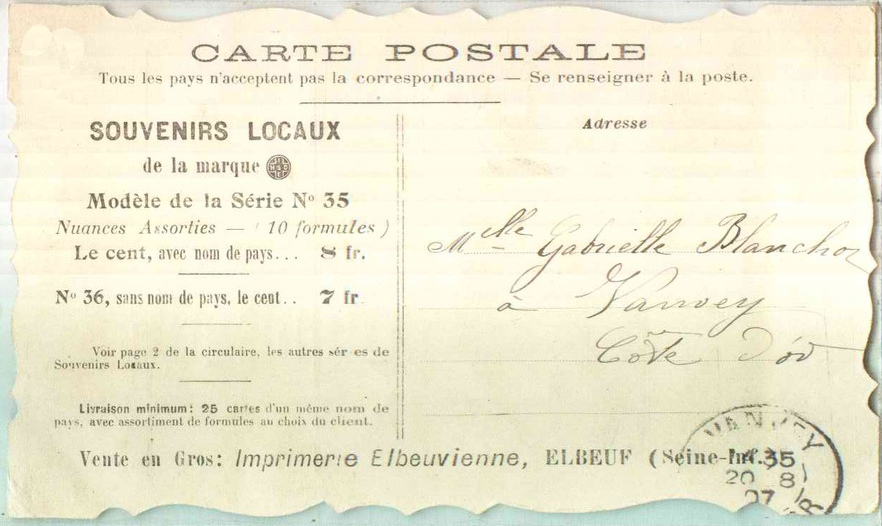 CARTE POSTALE
Tous les pays n'acceptent pas la correspondance — Se renseigner à la poste.
SOUVENIRS LOCAUX
de la marque
Modèle de la Série Nº 35
Nuances Assorties — (10 formules)
Le cent, avec nom de pays... 8 fr.
Nº 36, sans nom de pays, le cent.. 7 fr
Voir page 2 de la circulaire, les autres séries de
Souvenirs Locaux.
Livraison minimum: 25 cartes d'un même nom de
pays, avec assortiment de formules au choix du client.
Vente en Gros: Imprimerie Elbeuvienne, ELBEUF (Seine-Inf.
Adresse
Melle Gabrielle Blanchot
à Vanvey
Côte d'or
VANVEY
35
20 8
07
OR